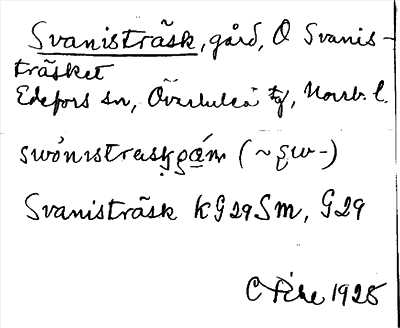 Svanisträsk, gård, Ö Svanis-
träsket
Edefors sn, Överluleå tg, Norrb. l.
swȯnıstraskgạ́m (~ʂw-)
Svanisträsk KG29Sm, G29
C Pihl 1928